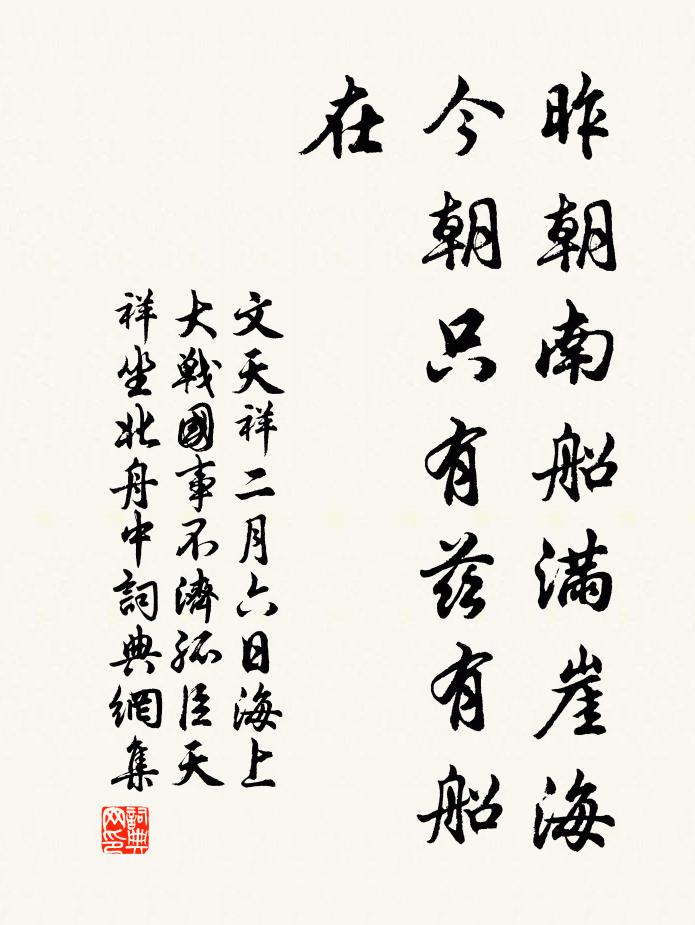 昨朝南船满崖海
今朝只有兹有船
在
文天祥二月六日海上
大戰國事不濟孤臣天
祥坐北舟中詞典網集
詞典
网印